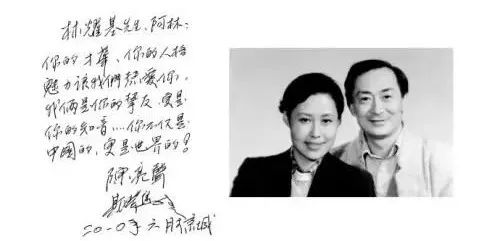 林耀基先生、阿林:
你的才華、你的人格
魅力讓我們热愛你。
我俩是你的摯友,更是
你的知音…你不仅是
中國的,更是世界的!
陳亮聲
斯琴
二〇一〇年六月于京城